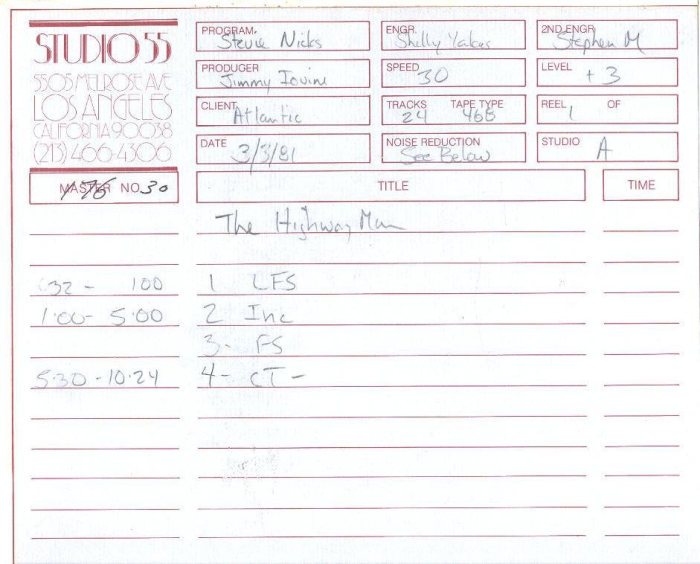 STUDIO 55
5505 MELROSE AVE
LOS ANGELES
CALIFORNIA 90038
(213) 466-4306
PROGRAM. Stevie Nicks
ENGR. Shelly Yakus
2ND ENGR. Stephen M
PRODUCER Jimmy Iovine
SPEED 30
LEVEL +3
CLIENT Atlantic
TRACKS 24 TAPE TYPE 468
REEL 1 OF
DATE 3/3/81
NOISE REDUCTION See Below
STUDIO A
MASTER NO. 30
TITLE
TIME
The Highway Man
:32 - 100 1 LFS
1:00- 5:00 2 Inc
3- FS
5:30 -10:24 4- CT-